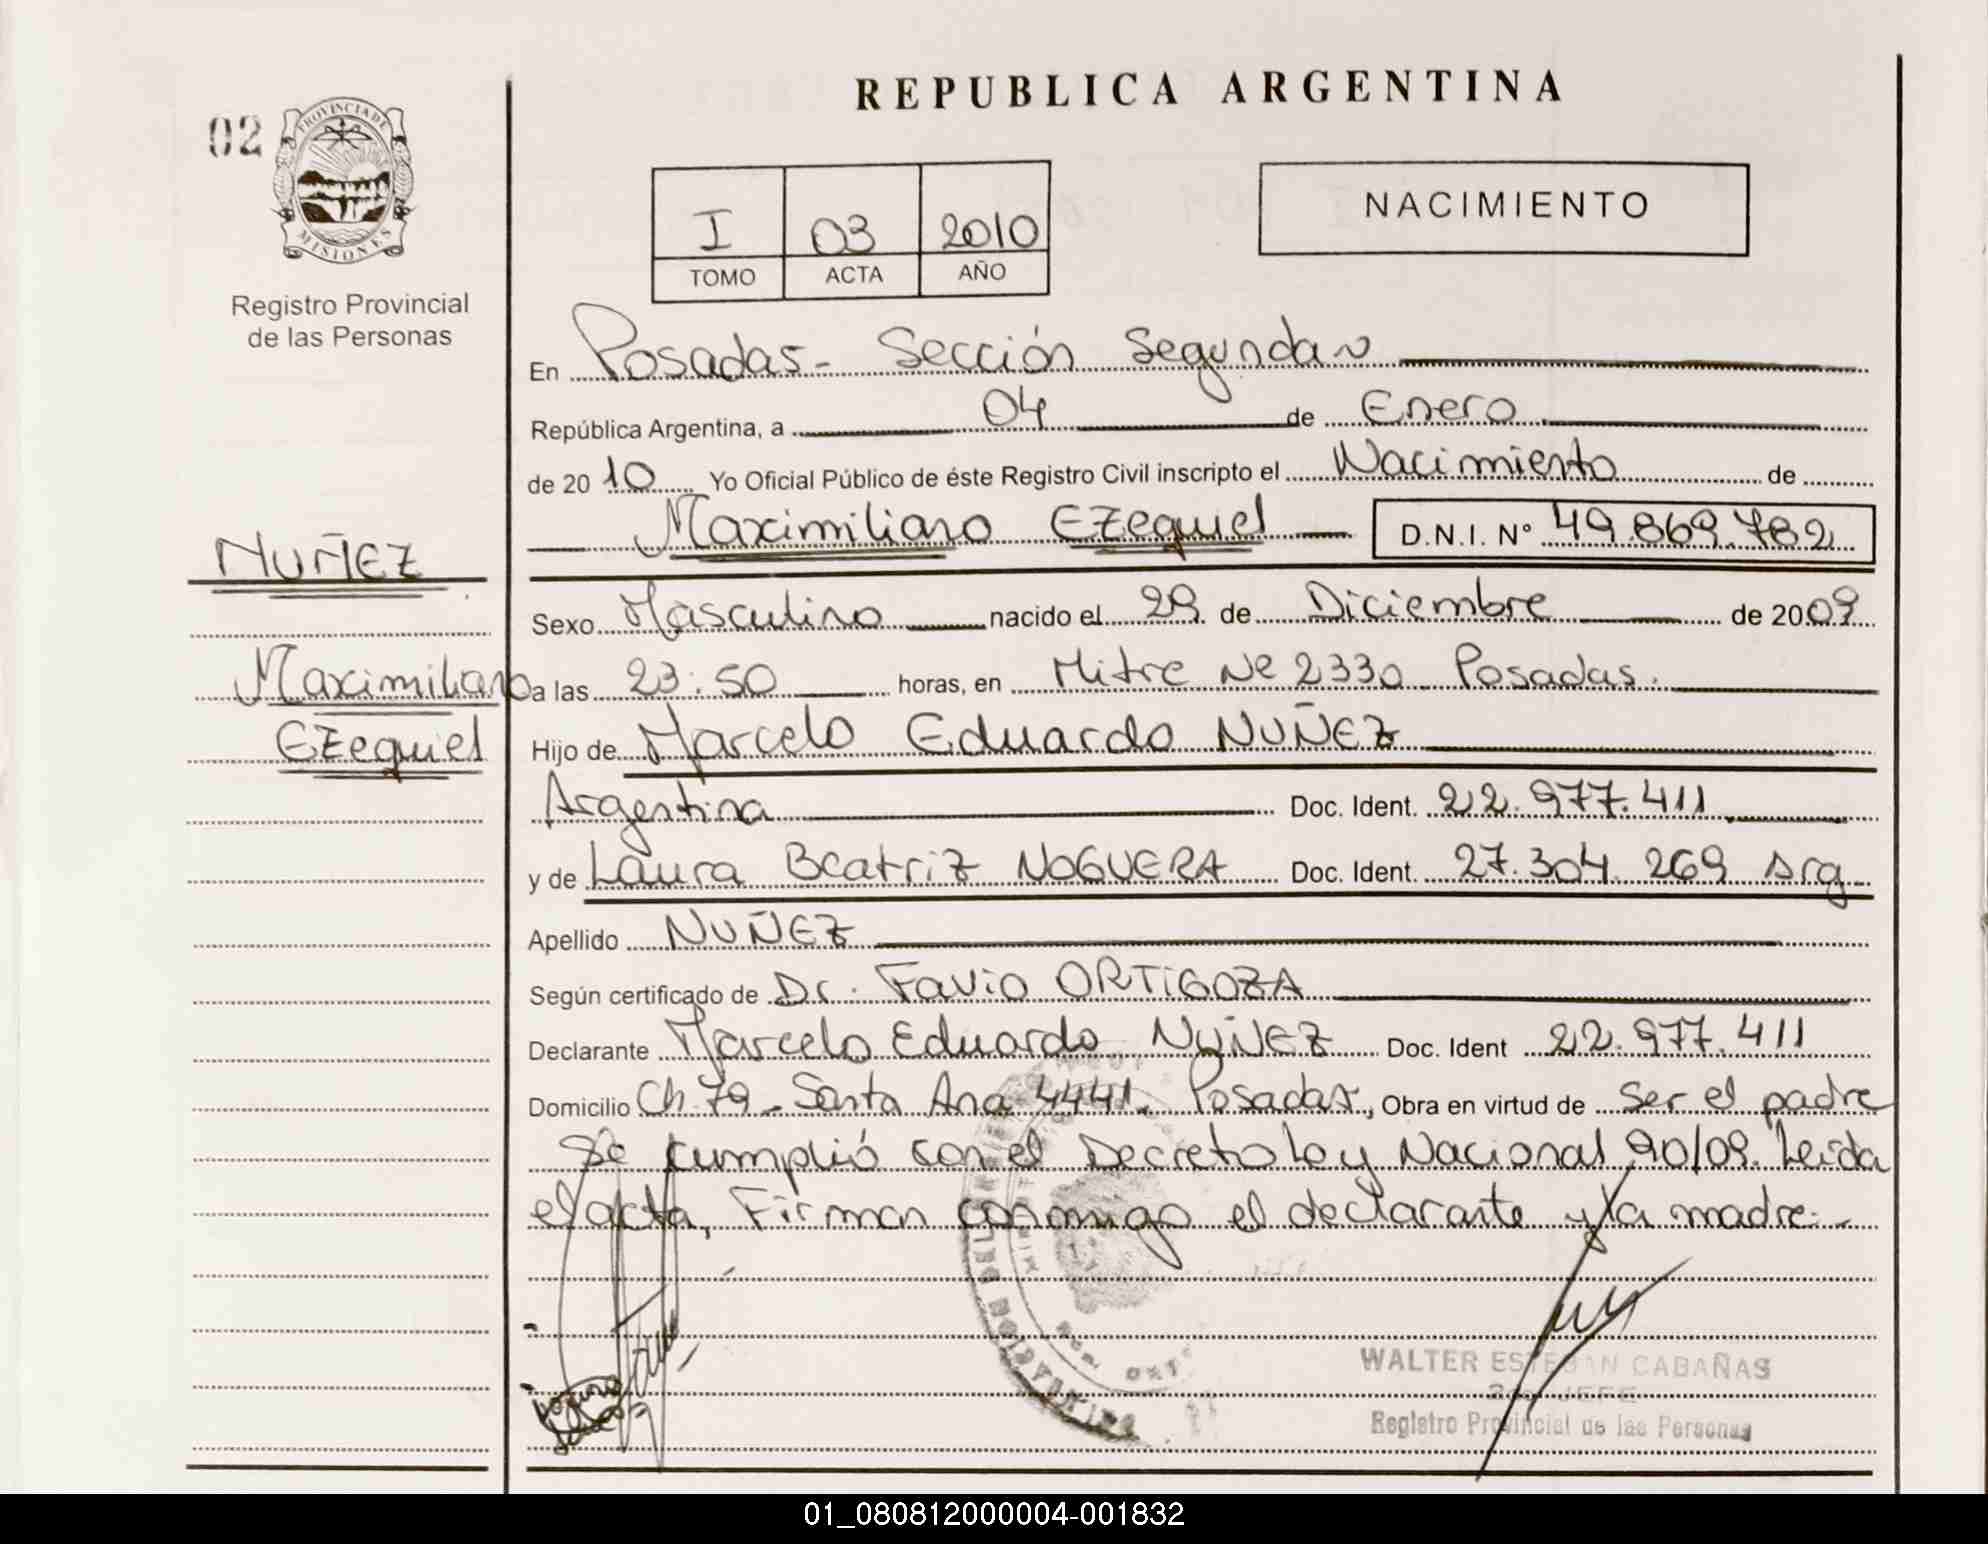 REPUBLICA ARGENTINA
02
PROVINCIA DE
MISIONES
Registro Provincial
de las Personas
I 03 2010
TOMO ACTA AÑO
NACIMIENTO
En Posadas - Sección Segunda
República Argentina, a 04 de Enero
de 2010 Yo Oficial Público de éste Registro Civil inscripto el Nacimiento de
Maximiliano Ezequiel D.N.I. Nº 49.869.782
NUÑEZ
Maximiliano
Ezequiel
Sexo Masculino nacido el 29 de Diciembre de 2009
a las 23:50 horas, en Mitre Nº 2330 Posadas.
Hijo de Marcelo Eduardo NUÑEZ
Argentina Doc. Ident. 22.977.411
y de Laura Beatriz NOGUERA Doc. Ident. 27.304.269 Arg
Apellido NUÑEZ
Según certificado de Dr. Favio ORTIGOZA
Declarante Marcelo Eduardo NUÑEZ Doc. Ident 22.977.411
Domicilio Ch. 79 - Santa Ana 4441. Posadas, Obra en virtud de ser el padre
Se cumplió con el Decreto Ley Nacional 90/09. Leida
el acta, Firman conmigo el declarante y la madre.-
WALTER ESTEBAN CABAÑAS
JEFE
Registro Provincial de las Personas
01_080812000004-001832